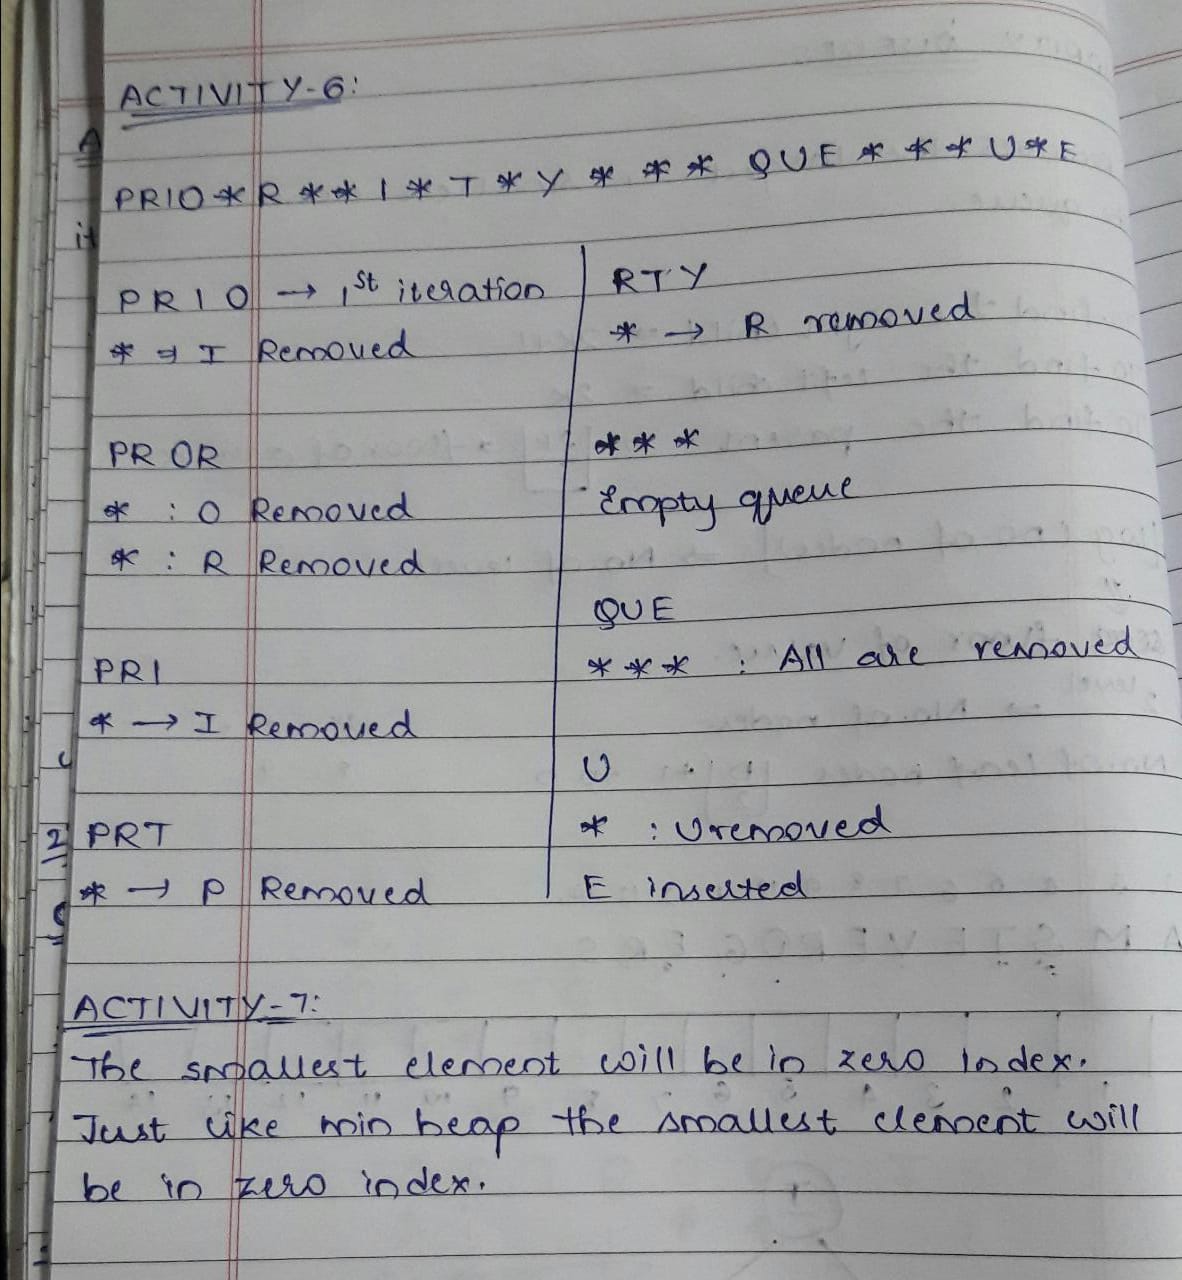 ACTIVITY-6:
PRIO * R * * I * T * Y * * * QUE * * * U * E
PRIO → 1st iteration
* → I Removed
PR OR
* : O Removed
* : R Removed
PRI
* → I Removed
PRT
* → P Removed
RTY
* → R removed
* * *
Empty queue
QUE
* * * : All are removed
U
* : U removed
E inserted
ACTIVITY-7:
The smallest element will be in zero index.
Just like min heap the smallest element will
be in zero index.